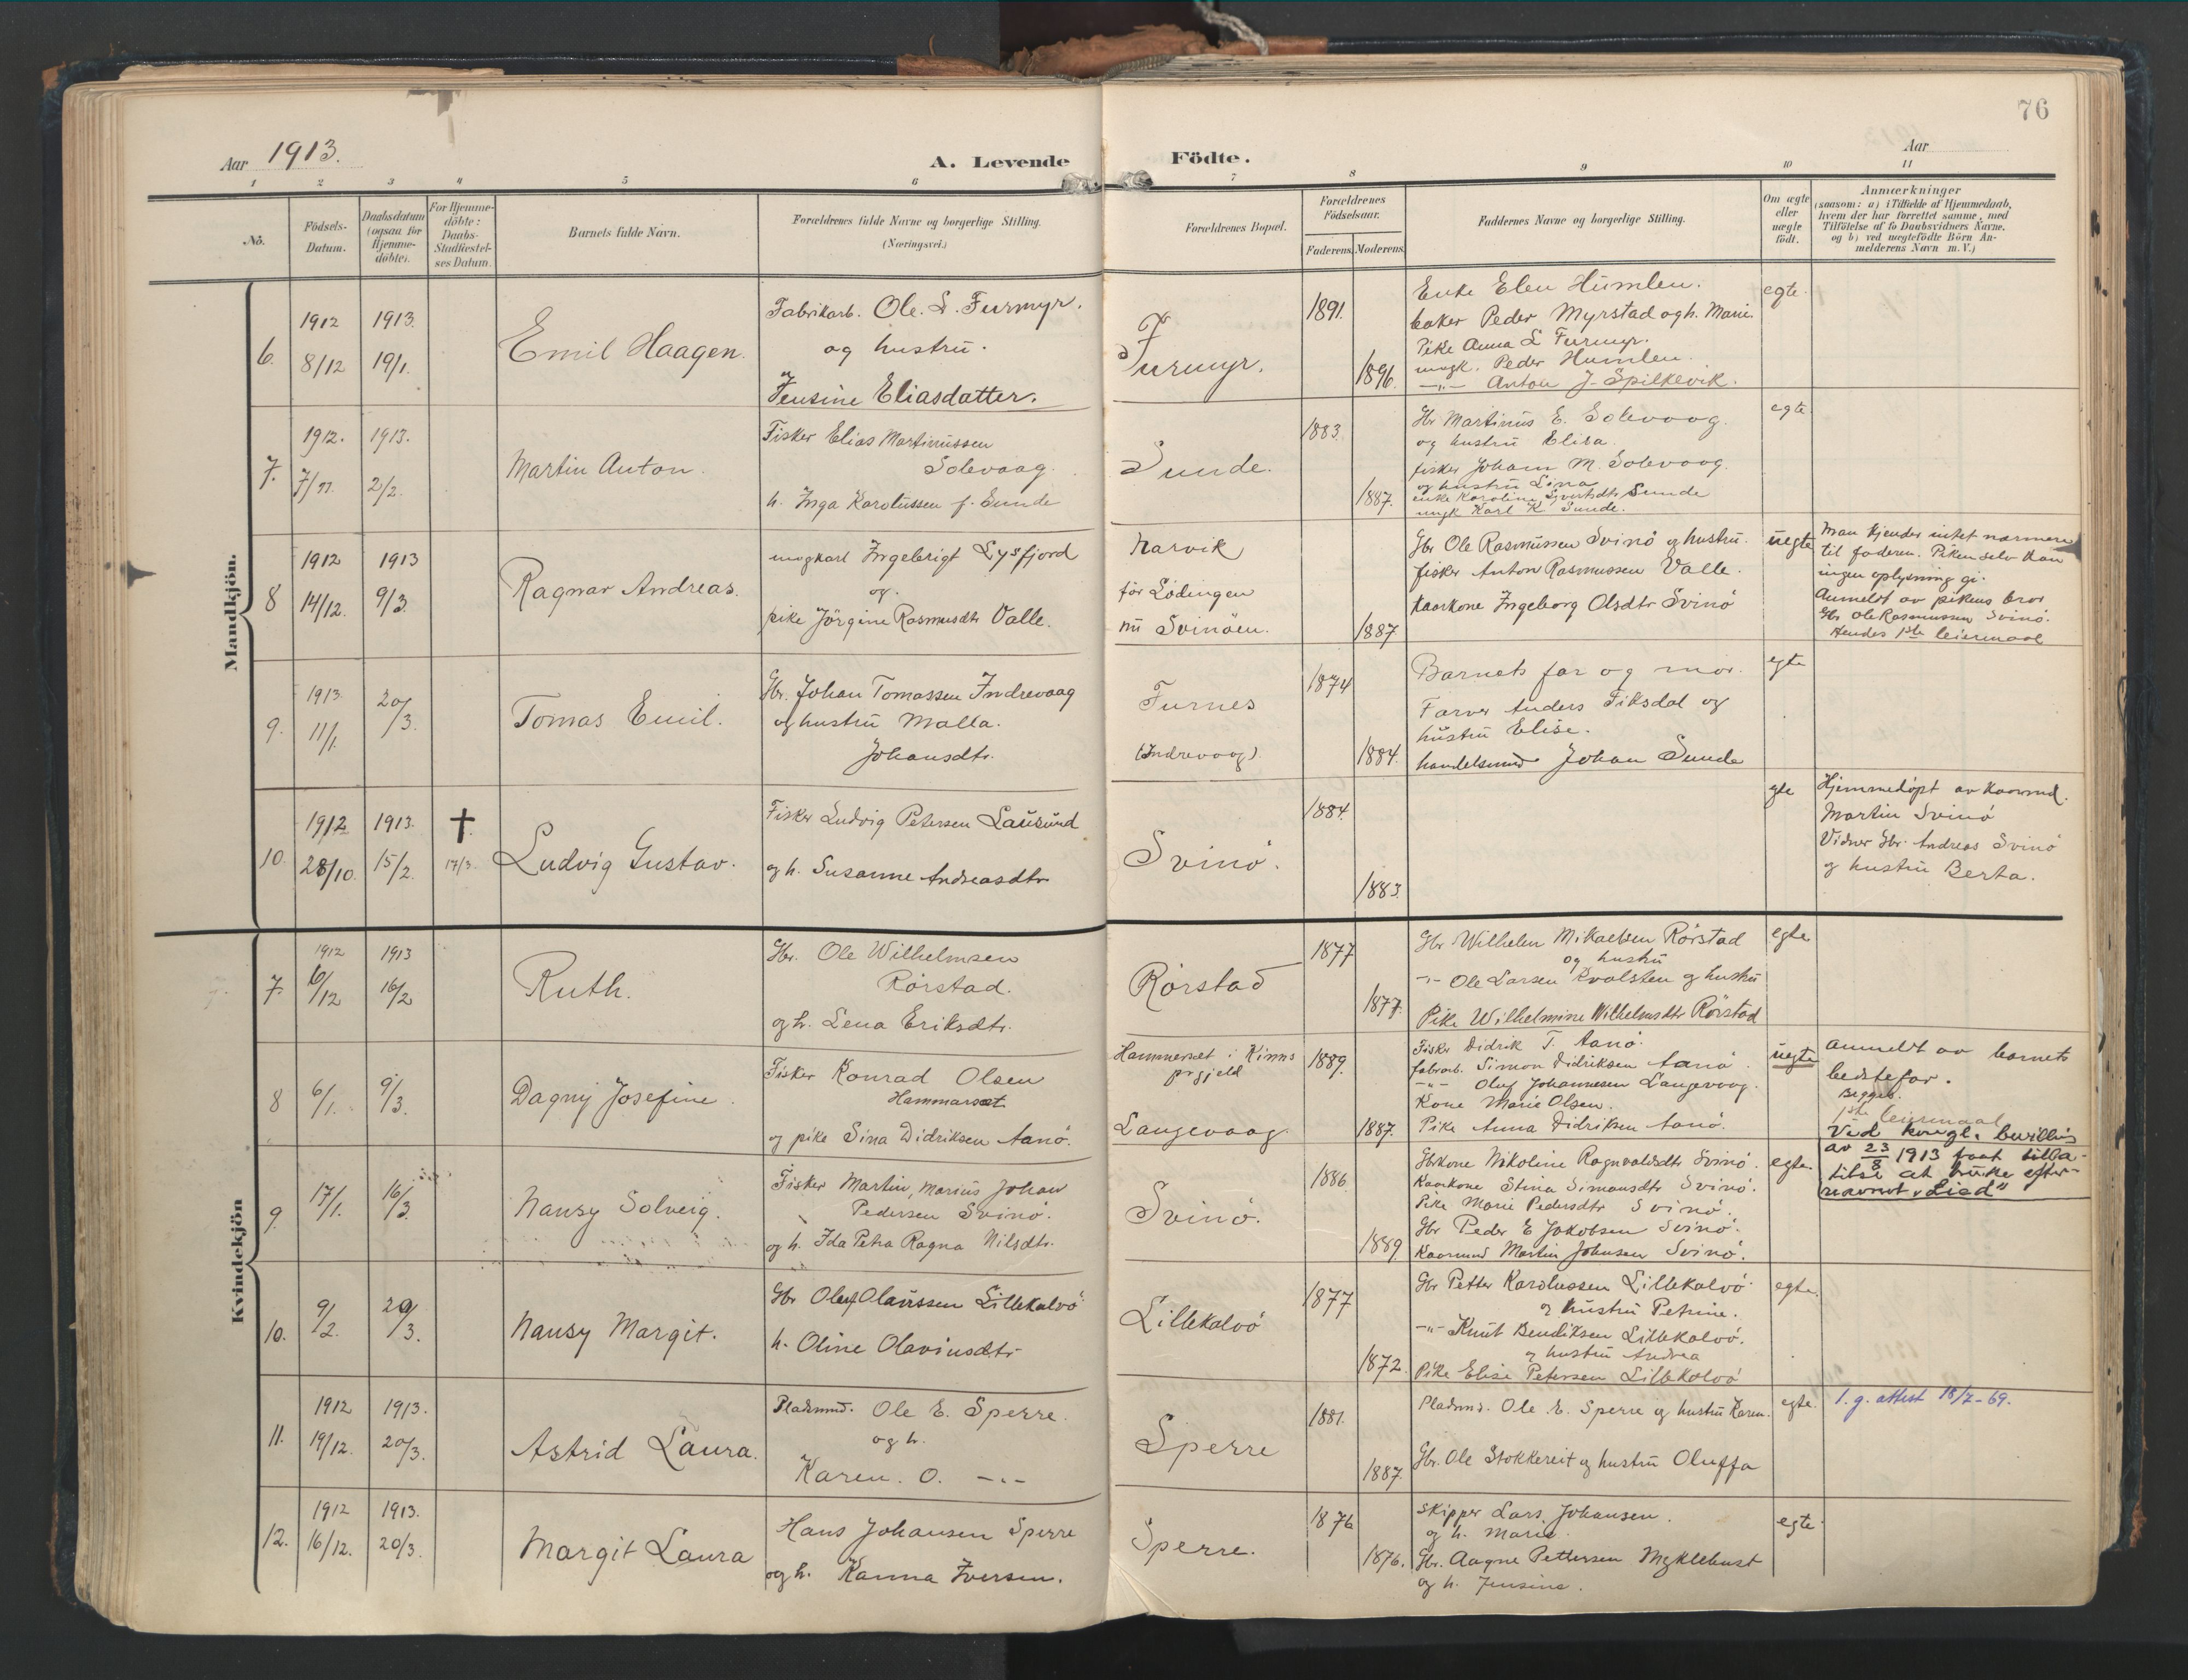 76
Aar 1913.
A. Levende
Födte.
Aar
1
2
3
4
5
6
7
8
9
10
11
No.
Födsels-
Datum.
Daabsdatum
(ogsaa for
Hjemme-
döbte).
For Hjemme-
döbte:
Daabs-
Stadfæstel-
ses Datum.
Barnets fulde Navn.
Forældrenes fulde Navne og borgerlige Stilling.
(Næringsvei.)
Forældrenes Bopæl.
Forældrenes
Födselsaar.
Faderens.
Moderens.
Faddernes Navne og borgerlige Stilling.
Om ægte
eller
uægte
födt.
Anmærkninger
(saasom: a) i Tilfælde af Hjemmedaab,
hvem der har forrettet samme, med
Tilföielse af to Daabsvidners Navne,
og b) ved uægtefödte Börn An-
melderens Navn m. V.)
Mandkjön.
6.
1912
8/12
1913.
19/1.
Emil Haagen.
Fabrikarb. Ole. L. Furmyr.
og hustru.
Jensine Eliasdatter.
Furmyr.
1891.
1896.
Enke Elen Humlen.
baker Peder Myrstad og h. Marie.
Pike Anna L Furmyr.
ungk. Peder Humlen.
—"— Anton J. Spilkevik.
egte.
7.
1912.
7/11.
1913.
2/2.
Martin Anton.
Fisker Elias Martinussen
Solevaag.
h. Inga Karolussen f. Sunde
Sunde.
1883.
1887.
Gbr Martinus E. Solevaag.
og hustru Elisa.
fisker Johan M. Solevaag.
og hustru Lina
enke Karoline Sjurtsdtr Sunde
ungk Karl K Sunde.
egte
8
1912
14/12.
1913
9/3.
Ragnar Andreas.
ungkarl Ingebrigt Lysfjord
og.
pike Jörgine Rasmusdtr Valle.
Narvik
för Lödingen
nu Svinöen.
1887.
Gbr Ole Rasmussen Svinö og hustru.
fisker Anton Rasmussen Valle.
Kaarkone Ingeborg Olsdtr Svinö
uegte
Man kjender intet nærmere
til faderen. Piken selv kan
ingen oplysning gi.
Anmeldt av pikens bror
Gbr Ole Rasmussen Svinö.
Hendes 1ste leiermaal
9.
1913.
11/1.
20/3.
Tomas Emil.
Gbr. Johan Tomassen Indrevaag
og hustru Malla.
Johansdtr.
Furnes
(Indrevaag)
1874
1884.
Barnets far og mor.
Farver Anders Fiksdal og
hustru Elise.
handelsmnd Johan Sunde
egte
10.
1912
28/10.
1913.
15/2.
†
17/3.
Ludvig Gustav.
Fisker Ludvig Petersen Lausund
og h. Susanne Andreasdtr
Svinö.
1884.
1883.
egte
Hjemmedöpt av kaarmd.
Martin Svinö
Vidner Gbr. Andreas Svinö
og hustru Berta.
Kvindekjön
7.
1912
6/12
1913
16/2
Ruth.
Gbr. Ole Wilhelmsen
Rörstad.
og h. Lena Eriksdtr.
Rörstad
1877
1877.
Gbr Wilhelm Mikaelsen Rörstad
og hustru
—"— Ole Larsen Kvalsten og hustru
Pike Wilhelmine Wilhelmsdtr Rörstad
egte
8
6/1.
9/3.
Dagny Josefine.
Fisker Konrad Olsen
Hammarsæt
og pike Sina Didriksen Aanö.
Hammerset i Kinns
prgjeld
Langevaag
1889.
1887.
Fisker Didrik T. Aanö.
fabrarb. Simon Didriksen Aanö.
—"— Oluf Johannesen Langevaag.
Kone Marie Olsen.
Pike Anna Didriksen Aanö.
uegte
anmeldt av barnets
bedstefar.
Begges
1ste leiermaal
Ved kongl. bevilling
av 23/8 1913 faat tilla-
telse at bruke efter-
navnet „Lied"
9.
17/1.
16/3.
Nansy Solveig.
Fisker Martin, Marius Johan
Pedersen Svinö.
og h. Ida Petra Ragna Nilsdtr.
Svinö.
1886.
1889
Gbrkone Nikoline Ragnvaldsdtr Svinö.
Kaarkone Stina Simonsdtr Svinö.
Pike Marie Pedersdtr Svinö.
Gbr Peder E Jakobsen Svinö.
Kaarmnd Martin Johnsen Svinö.
egte.
10.
9/2.
20/3.
Nansy Margit.
Gbr Oluf Olaussen Lillekalvö
h. Oline Olaviusdtr
Lillekalvö
1877
1872.
Gbr Petter Karolussen Lillekalvö
og hustru Petrine.
—"— Knut Bendiksen Lillekalvö.
og hustru Andrea
Pike Elise Petersen Lillekalvö
egte.
11.
1912
19/12.
1913.
20/3.
Astrid Laura.
Pladsmnd. Ole E. Sperre.
og h.
Karen. O. —"—
Sperre
1881.
1887.
Pladsmnd. Ole E. Sperre og hustru Karen.
Gbr. Ole Stokkereit og hustru Oluffa
egte.
1. g. attest 18/7-69.
12.
1912
16/12.
1913.
20/3.
Margit Laura
Hans Johansen Sperre
og h. Kanna Iversen.
Sperre.
1876
1876.
Skipper Lars Johansen.
og h. Marie.
Gbr. Aagne Pettersen Myklebust
og h. Jensine.
egte.